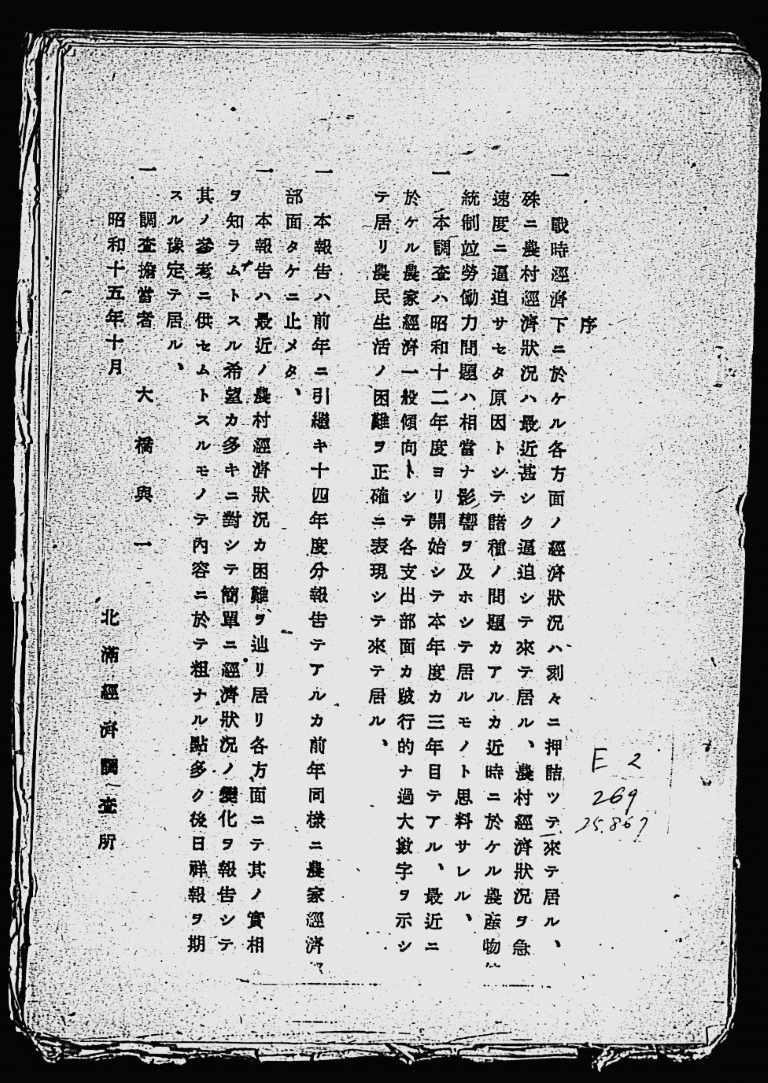 序
一 戰時經濟下ニ於ケル各方面ノ經濟狀況ハ刻々ニ押詰ツテ來テ居ル、
殊ニ農村經濟狀況ハ最近甚シク逼迫シテ來テ居ル、農村經濟狀況ヲ急
速度ニ逼迫サセタ原因トシテ諸種ノ問題カアルカ近時ニ於ケル農產物
統制竝勞働力問題ハ相當ナ影響ヲ及ホシテ居ルモノト思料サレル、
一 本調査ハ昭和十二年度ヨリ開始シテ本年度カ三年目テアル、最近ニ
於ケル農家經濟一般傾向トシテ各支出部面カ跛行的ナ過大數字ヲ示シ
テ居リ農民生活ノ困難ヲ正確ニ表現シテ來テ居ル、
一 本報告ハ前年ニ引繼キ十四年度分報告テアルカ前年同樣ニ農家經濟
部面タケニ止メタ、
一 本報告ハ最近ノ農村經濟狀況カ困難ヲ辿リ居リ各方面ニテ其ノ實相
ヲ知ラムトスル希望カ多キニ對シテ簡單ニ經濟狀況ノ變化ヲ報告シテ
其ノ參考ニ供セムトスルモノテ內容ニ於テ粗ナル點多ク後日詳報ヲ期
スル豫定テ居ル、
一 調査擔當者 大橋與一
昭和十五年十月
北滿經濟調査所
E 2
269